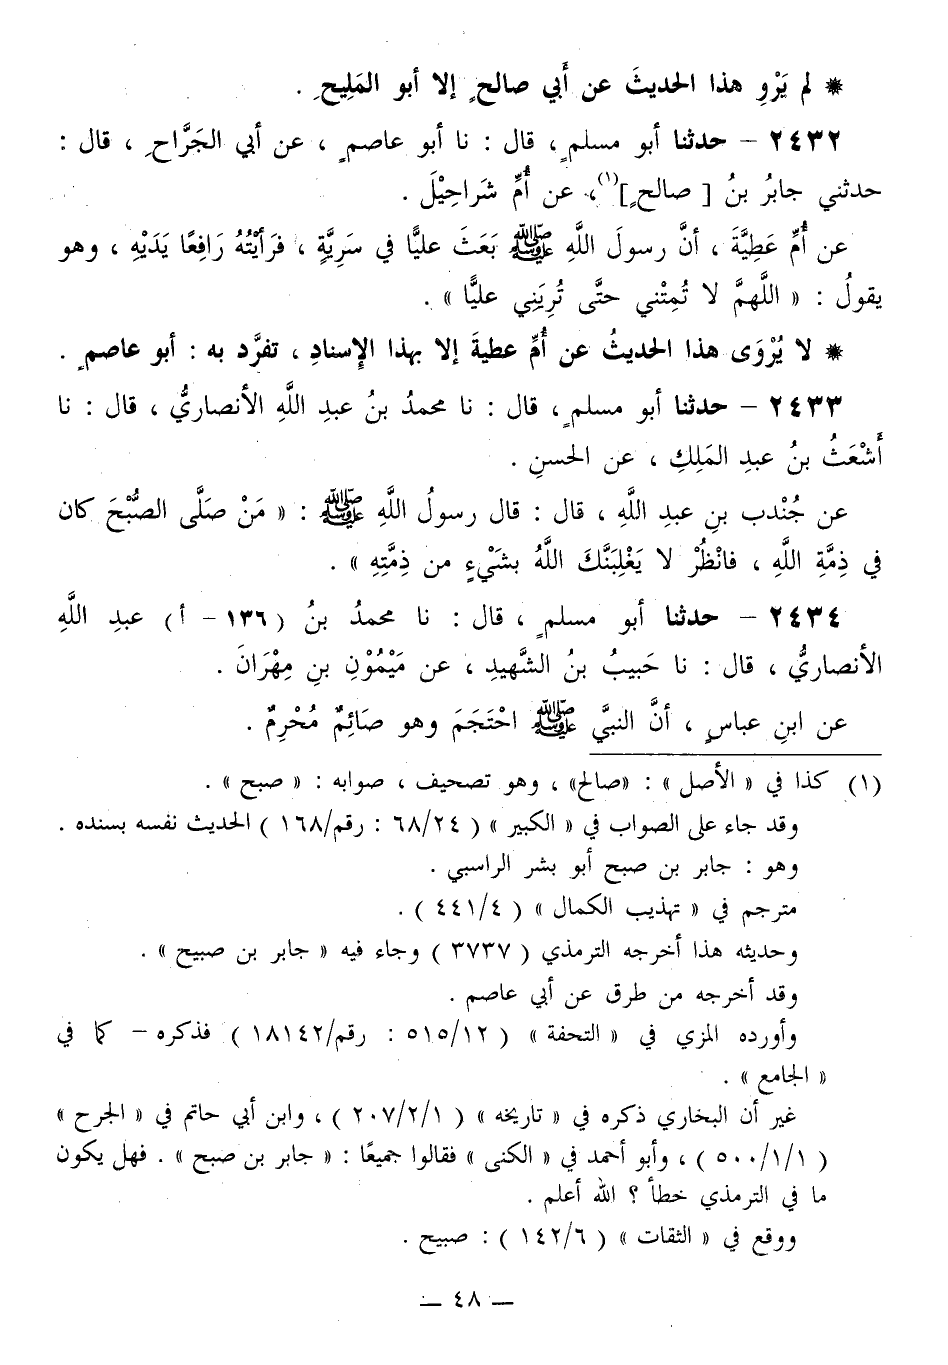 * لم يَرْوِ هذا الحديثَ عن أَبي صالحٍ إلا أبو المَلِيحِ .
٢٤٣٢ – حدثنا أبو مسلمٍ ، قال : نا أبو عاصمٍ ، عن أبي الجَرَّاحِ ، قال :
حدثني جابرُ بنُ [ صالحٍ ](١)، عن أُمِّ شَراحِيْلَ .
عن أُمِّ عَطِيَّةَ ، أنَّ رسولَ اللَّهِ ﷺ بَعَثَ عليًّا في سَرِيَّةٍ ، فَرَأَيْتُهُ رَافِعًا يَدَيْهِ ، وهو
يقولُ : « اللَّهمَّ لا تُمِتْني حتَّى تُرِيَنِي عليًّا » .
* لا يُرْوَى هذا الحديثُ عن أُمِّ عطيةَ إلا بهذا الإِسنادِ ، تفرَّد به : أبو عاصمٍ .
٢٤٣٣ – حدثنا أبو مسلمٍ ، قال : نا محمدُ بنُ عبدِ اللَّهِ الأنصاريُّ ، قال : نا
أَشْعَثُ بنُ عبدِ المَلِكِ ، عن الحسنِ .
عن جُنْدبِ بنِ عبدِ اللَّهِ ، قال : قال رسولُ اللَّهِ ﷺ : « مَنْ صَلَّى الصُّبْحَ كان
في ذِمَّةِ اللَّهِ ، فانْظُرْ لا يَغْلِبَنَّكَ اللَّهُ بشَيْءٍ من ذِمَّتِهِ » .
٢٤٣٤ – حدثنا أبو مسلمٍ ، قال : نا محمدُ بنُ ( ١٣٦ – أ ) عبدِ اللَّهِ
الأنصاريُّ ، قال : نا حَبيبُ بنُ الشَّهيدِ ، عن مَيْمُوْنِ بنِ مِهْرَانَ .
عن ابنِ عباسٍ ، أنَّ النبيَّ ﷺ احْتَجَمَ وهو صَائِمٌ مُحْرِمٌ .
(١) كذا في « الأصل » : «صالح» ، وهو تصحيف ، صوابه : « صبح » .
وقد جاء على الصواب في « الكبير » ( ٦٨/٢٤ : رقم/١٦٨ ) الحديث نفسه بسنده .
وهو : جابر بن صبح أبو بشر الراسبي .
مترجم في « تهذيب الكمال » ( ٤٤١/٤ ) .
وحديثه هذا أخرجه الترمذي ( ٣٧٣٧ ) وجاء فيه « جابر بن صبيح » .
وقد أخرجه من طرق عن أبي عاصم .
وأورده المزي في « التحفة » ( ٥١٥/١٢ : رقم/١٨١٤٢ ) فذكره – كما في
« الجامع » .
غير أن البخاري ذكره في « تاريخه » ( ٢٠٧/٢/١ ) ، وابن أبي حاتم في « الجرح »
( ٥٠٠/١/١ ) ، وأبو أحمد في « الكنى » فقالوا جميعًا : « جابر بن صبح » . فهل يكون
ما في الترمذي خطأ ؟ الله أعلم .
ووقع في « الثقات » ( ١٤٢/٦ ) : صبيح .
— ٤٨ —